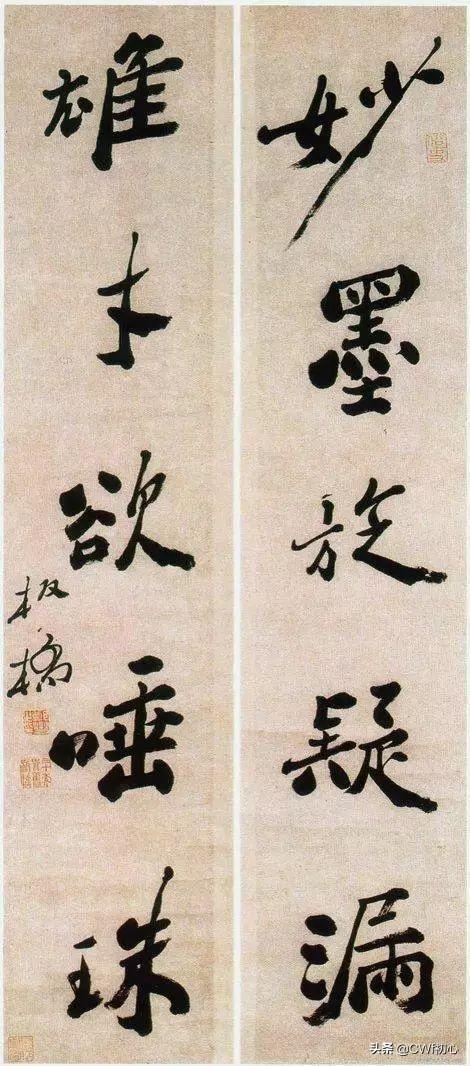 妙墨旋疑漏
雄才欲唾珠
板橋
头条 @CW初心